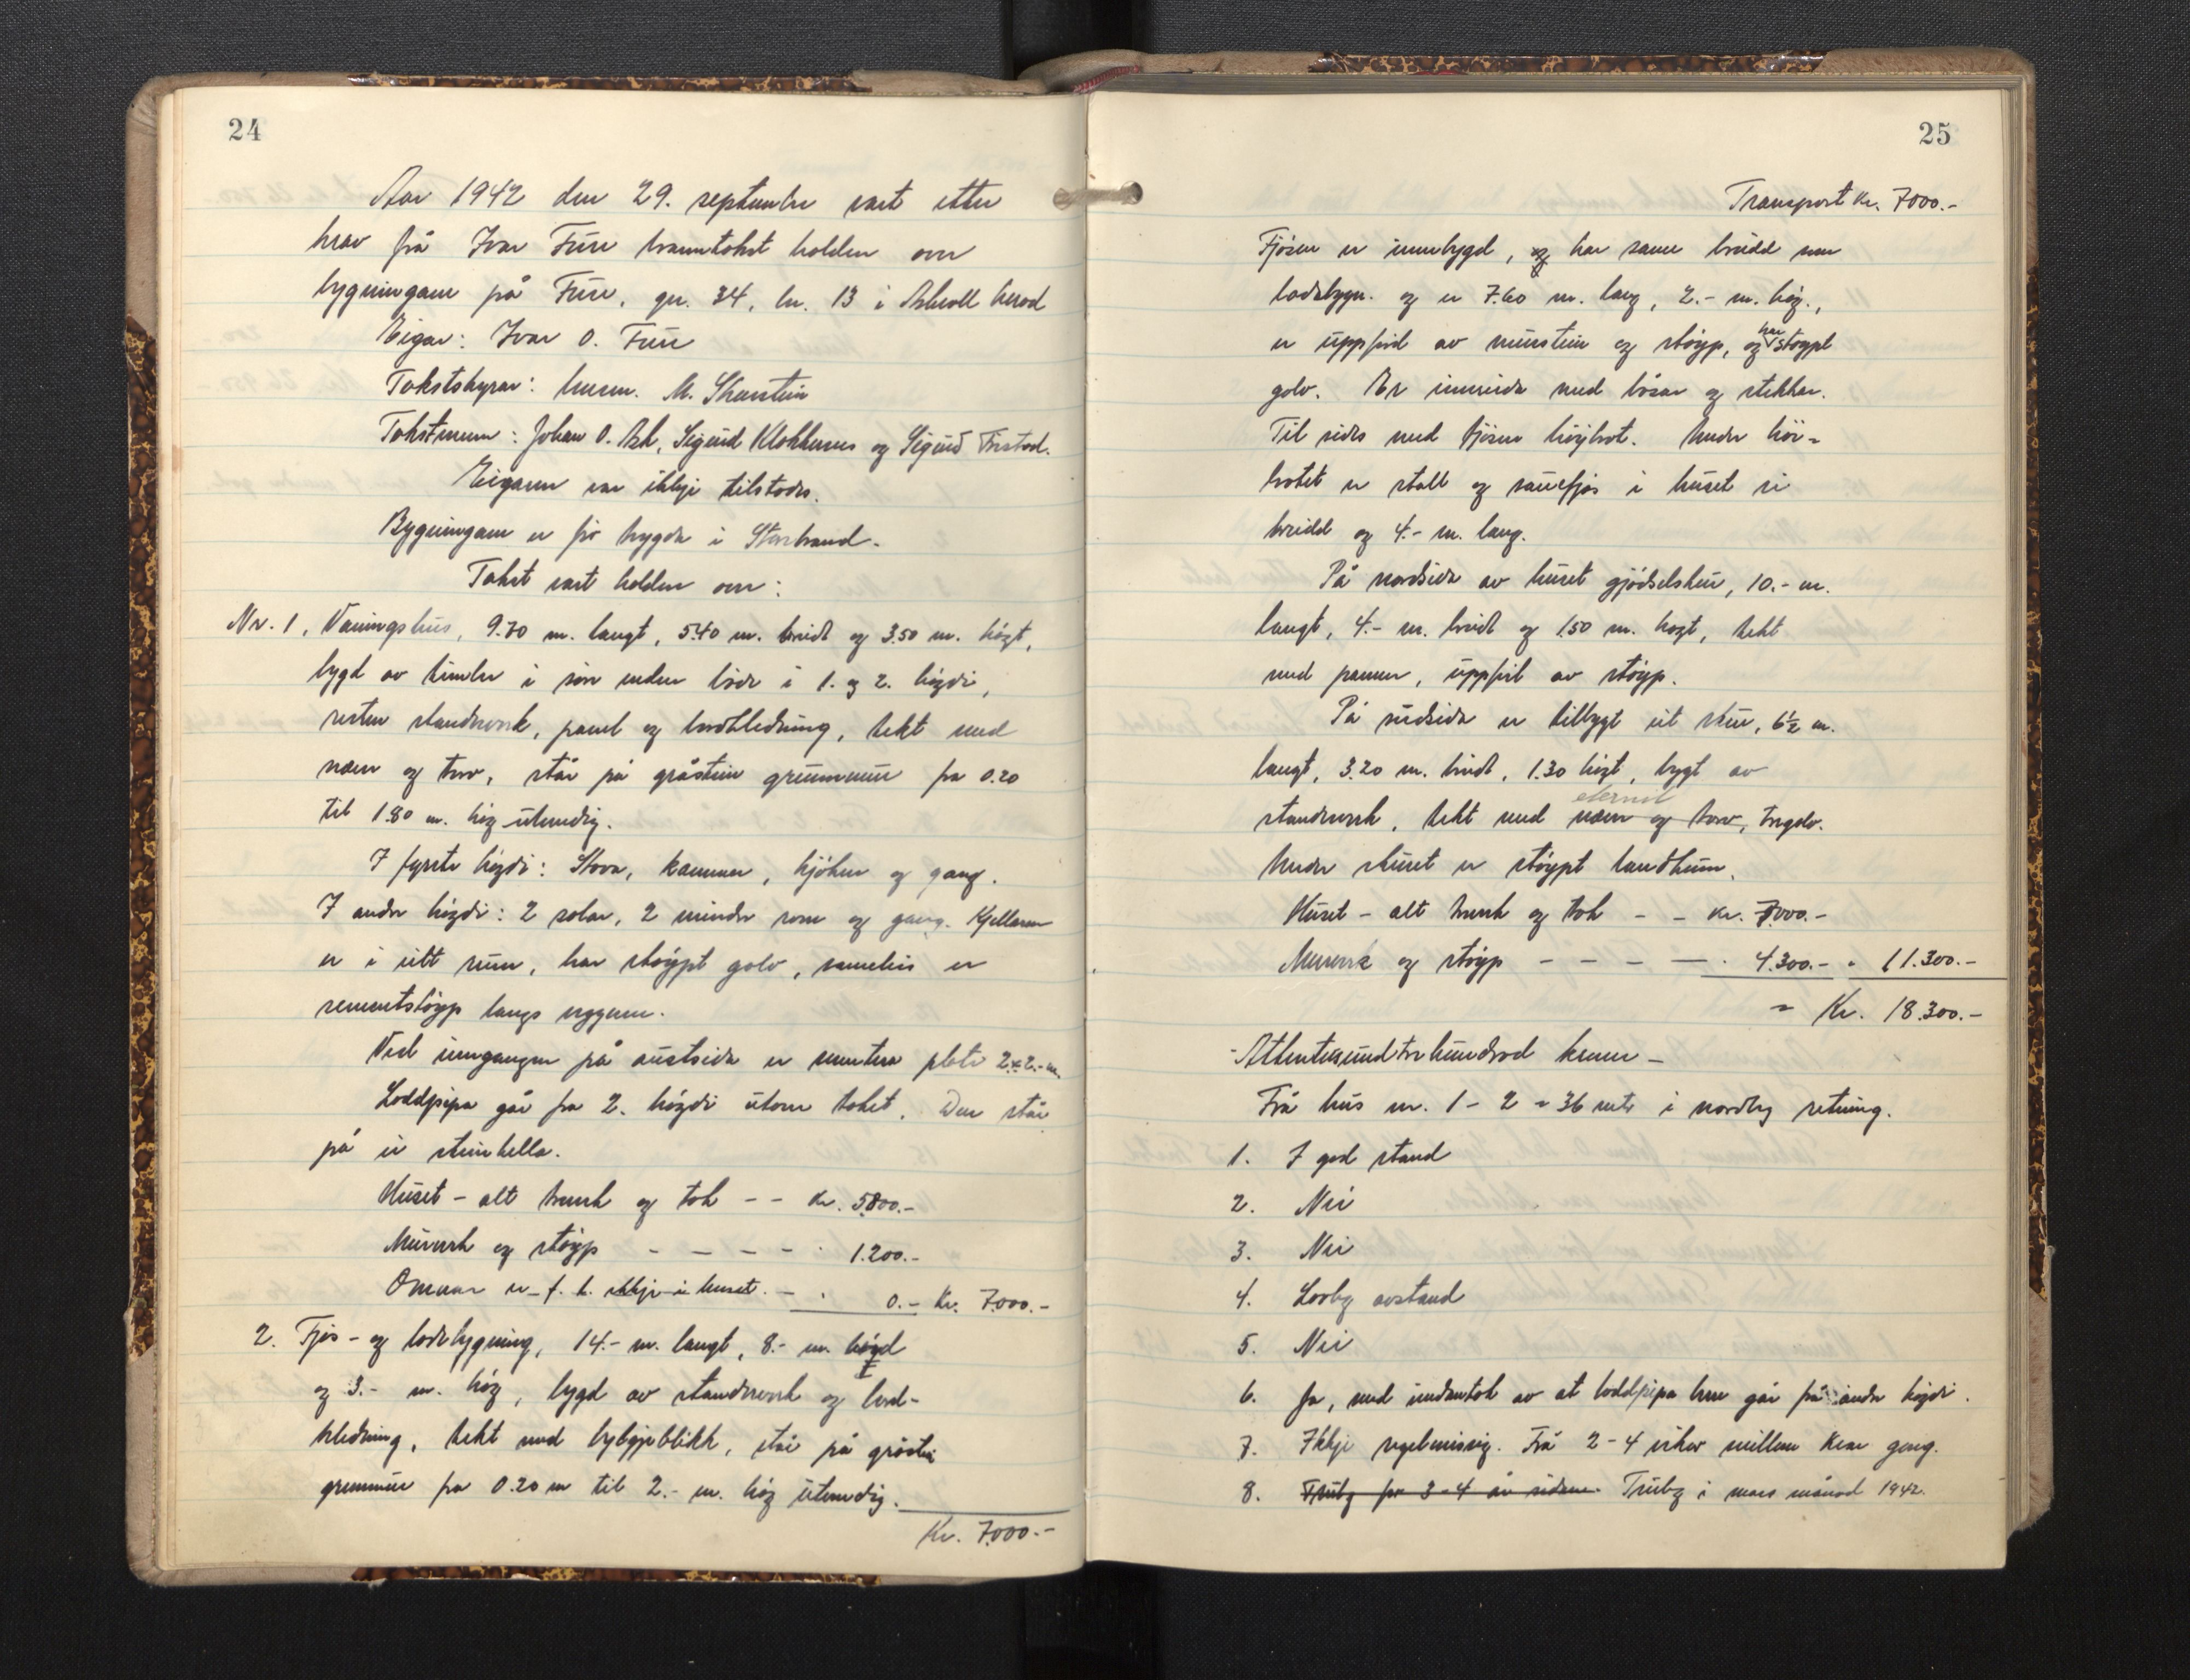 24
Aar 1942 den 29. september vart etter
krav frå Ivar Fure branntakst halden over
bygningane på Fure, gr. 34, br. 13 i Askvoll herad
Eigar: Ivar O. Fure
Takststyrar: lensm. M. Skarstein
Takstmenn: Johan O. Ask, Sigurd Klokkernes og Sigurd
Eigaren var ikkje tilstades.
Bygningane er før trygda i Storbrand.
Takst vart halden over:
Nr. 1, Våningshus, 9.70 m. langt, 5.40 m. breidt og 3.50 m. høgt,
bygd av timber i søre enden både i 1. og 2. høgdi,
resten standverk, panel og bordkledning, tekt med
næver og torv, står på gråstein grunnmur fra 0.20
til 1.80 m. høg utvendig.
I fyrste høgdi: Stova, kammer, kjøken og gang.
I andre høgdi: 2 salar, 2 mindre rom og gang. Kjellaren
er i eitt rum, har støypt golv, sameleis er
sementstøyp langs veggene.
Ved inngangen på austsida er sementera plate 2 x 2.- m.
Loddpipa går fra 2. høgdi utom taket. Den står
på ei steinhella.
Huset - alt treverk og tak - - Kr. 5800.-
Murverk og støyp - - - - " 1.200.-
Omnar er f. t. ikkje i huset. - " 0.- Kr. 7.000.-
2. Fjøs- og lødebygning, 14.- m. langt, 8.- m. breid
og 3.- m. høg, bygd av standverk og bord-
kledning, tekt med bylgjeblikk, står på gråstein
grunnmur fra 0.20 m til 2.- m. høg utvendig.
Kr. 7.000.-
25
Transport Kr. 7000.-
Fjøsen er innbygd, og har same breidd som
lødebygn. og er 7.60 m. lang, 2.- m. høg,
er uppførd av murstein og støyp, og har støypt
golv. Er innreida med båsar og stekkar.
Til sides med fjøsen høybrot. Under høy-
brotet er stall og sauefjøs i huset si
breidd og 4.- m. lang.
På nordsida av huset gjødselshus, 10.- m.
langt, 4.- m. breidt og 1.50 m. høgt, tekt
med panner, uppført av støyp.
På sudsida er tilbygt eit skur, 6½ m.
langt, 3.20 m. breidt, 1.30 høgt, bygt av
eternit
standverk, tekt med næver og torv, tregolv.
Under skuret er støypt landkum.
Huset - alt treverk og tak - - Kr. 7.000.-
Murverk og støyp - - - - " 4.300.- " 11.300.-
= Kr. 18.300.-
- Attentusundtrehundrad kroner -
Frå hus nr. 1 - 2 = 36 mtr i nordleg retning.
1. I god stand
2. Nei
3. Nei
4. Lovleg avstand
5. Nei
6. Ja, med undantak av at loddpipa berre går frå andre høgdi.
7. Ikkje regelmessig. Frå 2-4 vikor millom kvar gong.
8. Truleg for 3-4 år sidan. Truleg i mars månad 1942.